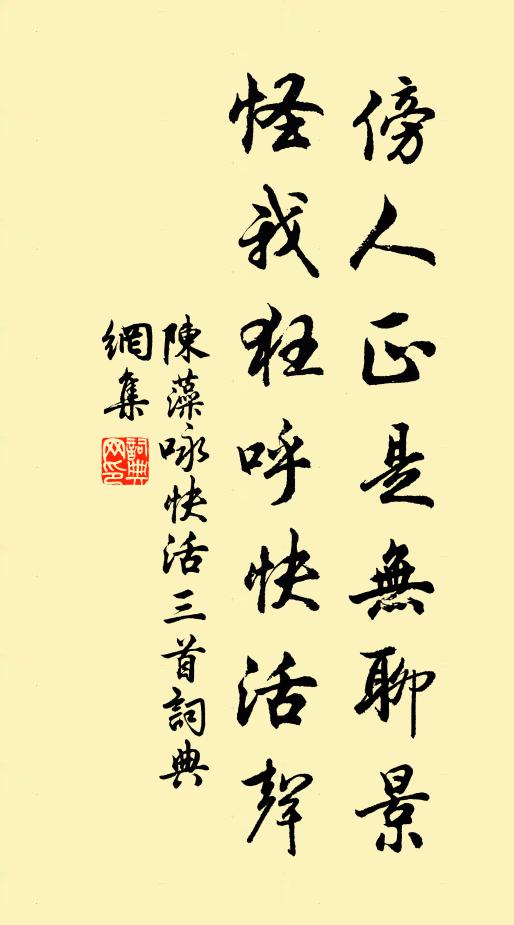 傍人正是無聊景
怪我狂呼快活聲
陳藻咏快活三首詞典
網集
詞典
網印